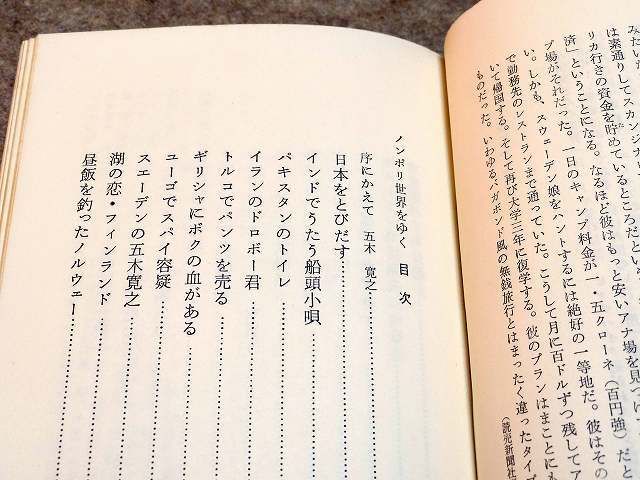 みたいだ
は素通りしてスカンジナ
リカ行きの資金を貯めているところだとい
済」ということになる。なるほど彼はもっと安いアナ場を見つけ
プ場がそれだった。一日のキャンプ料金が一・五クローネ（百円強）だと
い。しかも、スウェーデン娘をハントするには絶好の一等地だ。彼はその
で勤務先のレストランまで通っていた。こうして月に百ドルずつ残してア
いて帰国する。そして再び大学三年に復学する。彼のプランはまことにも
ものだった。いわゆるバガボンド風の無銭旅行とはまったく違ったタイプ
（読売新聞社
ノンポリ世界をゆく 目次
序にかえて 五木 寛之
日本をとびだす
インドでうたう船頭小唄
パキスタンのトイレ
イランのドロボー君
トルコでパンツを売る
ギリシャにボクの血がある
ユーゴでスパイ容疑
スエーデンの五木寛之
湖の恋・フィンランド
昼飯を釣ったノルウェー